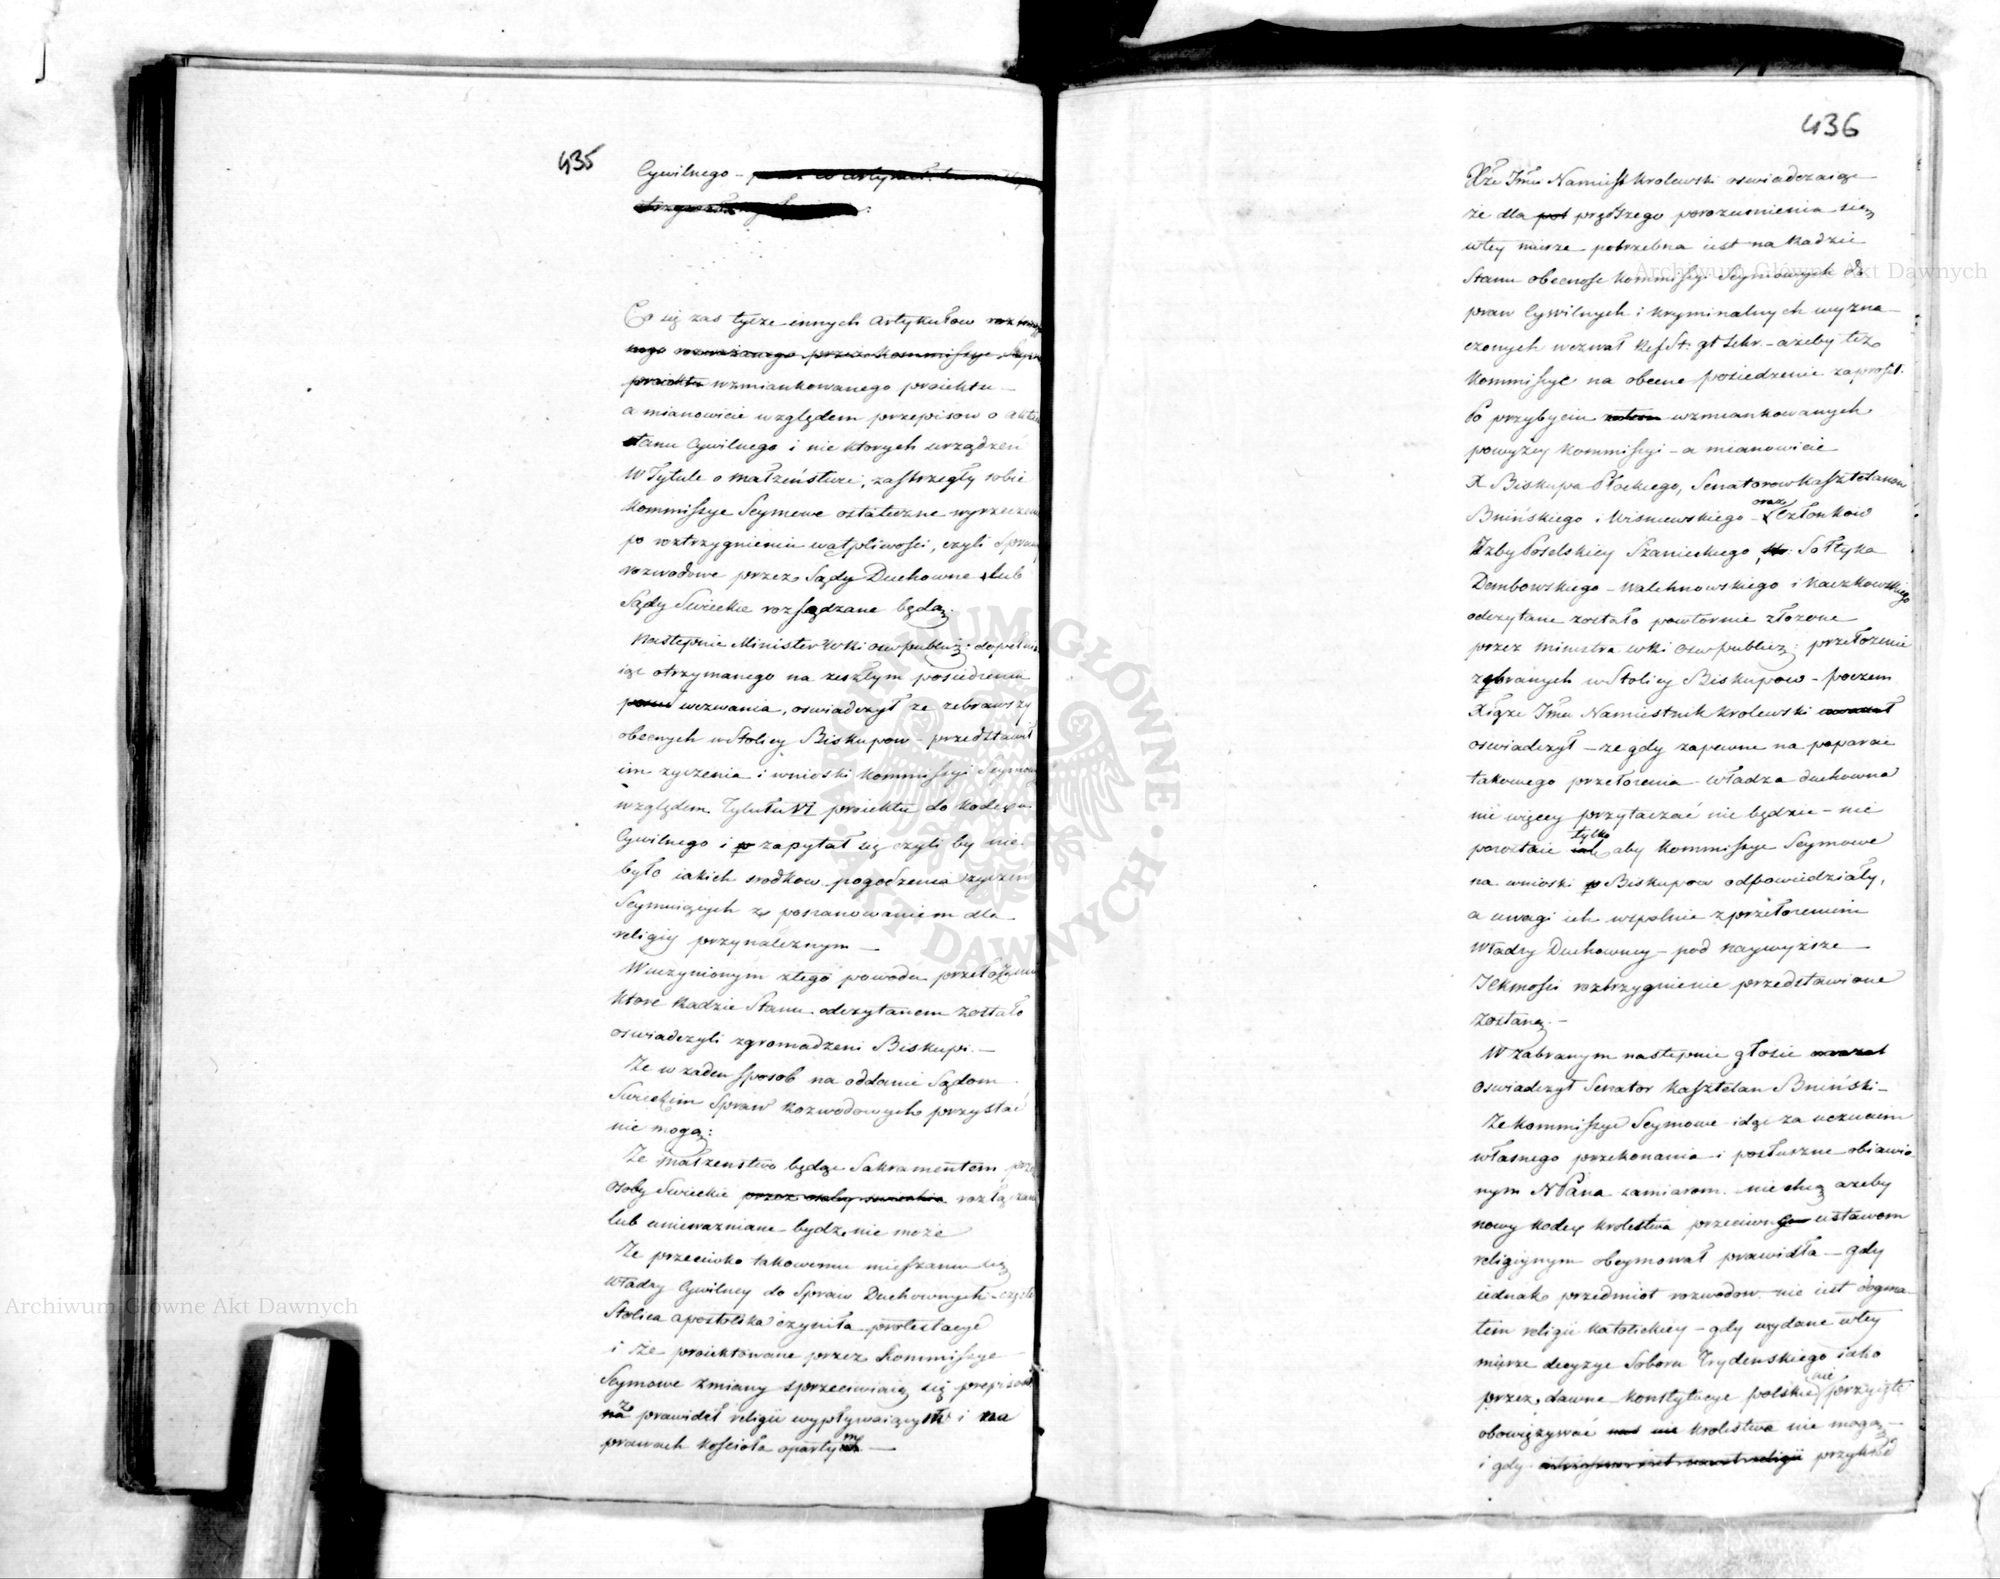 435
Cywilnego –
Co się zas tycze innych Artykułow
wzmiankowanego proiektu –
a mianowicie względem przepisow o aktach
stanu Cywilnego i nie ktorych urządzeń
W Tytule o małżeństwie, zastrzegły sobie
Kommissye Seymowe ostateczne wyrzeczenie
po roztrzygnieniu wątpliwosci, czyli Sprawy
rozwodowe przez Sądy Duchowne lub
Sądy Swieckie rozsądzane będą.
Następnie Minister WRki Osw publicz: dopełnia
iąc otrzymanego na zeszłym posiedzeniu
wezwania, oswiadczył ze zebrawszy
obecnych w Stolicy Biskupow – przedstawił
im zyczenia i wnioski Kommissyi Seymow
względem Tytułu VI proiektu do Kodexu
Cywilnego i zapytał się czyli by nie
było iakich srodkow pogodzenia zyczen
Seymuiących z poszanowaniem dla
religiy przynaleznym –
W uczynionym z tego powodu przełożeniu
ktore Radzie Stanu odczytanem zostało
oswiadczyli zgromadzeni Biskupi. –
Ze w zaden sposob na oddanie Sądom
Swieckim Spraw Rozwodowych przystać
nie mogą:
Ze małzenstwo będąc Sakramentem przez
Osoby Swieckie rozłączane
lub uniewazniane bydz nie może
Ze przeciwko takowemu mieszaniu się
Władzy Cywilney do Spraw Duchownych – częste
Stolica apostolska czyniła protestacye
i że proiektowane przez Kommissye
Seymowe zmiany sprzeciwiaią się przepisom
z prawideł religii wypływaiącym i na
prawach Kościoła opartym –
436
Xże Jmć Namiest Krolewski oswiadczaiąc
że dla prętszego porozumienia się
w tey mierze potrzebna iest na Radzie
Stanu obecnosc Kommissyi Seymowych do
praw Cywilnych i Kryminalnych wyzna
czonych wezwał Ref St: gł Sekr. – azeby też
Kommissye na obecne posiedzenie zaprosił.
Po przybyciu wzmiankowanych
powyżey Kommissyi – a mianowicie
X Biskupa Płockiego, Senatorow Kasztelanow
Bnińskiego i Wiśniewskiego – oraz Członkow
Izby Poselskiey Szanieckiego, Sołtyka
Dembowskiego – Walchnowskiego i Kaczkowskiego
odczytane zostało powtornie złożone
przez Ministra WRki Osw publicz: przełożenie
zebranych w Stolicy Biskupow – poczem
Xiąże Jmć Namiestnik Krolewski
oswiadczył – ze gdy zapewne na poparcie
takowego przełozenia Władza duchowna
nic więcey przytaczać nie będzie – nie
pozostaie tylko aby Kommissye Seymowe
na wnioski Biskupow odpowiedziały,
a uwagi ich wspolnie z przełozeniem
Władzy Duchowney – pod Naywyższe
JCKmości roztrzygnienie przedstawione
zostaną. –
W zabranym następnie głosie
oswiadczył Senator Kasztelan Bniński –
Ze Kommissye Seymowe idąc za uczuciem
własnego przekonania i posłuszne obiawio
nym NPana zamiarom – nie chcą azeby
nowy Kodex Krolestwa przeciwne ustawom
religiynym obeymował prawidła – gdy
iednak przedmiot rozwodow nie iest dogma
tem religii Katolickiey – gdy wydane w tey
mierze decyzye Soboru Trydenskiego iako
przez dawne Konstytucye polskie nie przyięte
obowięzywać Krolestwa nie mogą –
i gdy przykład
Archiwum Główne Akt Dawnych
Archiwum Główne Akt Dawnych
ARCHIWUM GŁÓWNE AKT DAWNYCH